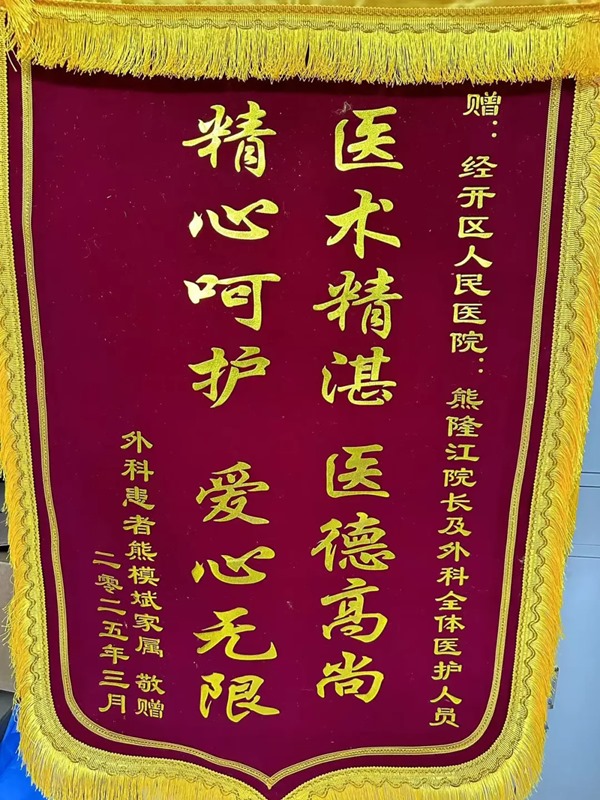 赠：经开区人民医院：熊隆江院长及外科全体医护人员
医术精湛 医德高尚
精心呵护 爱心无限
外科患者熊模斌家属 敬赠
二零二五年三月